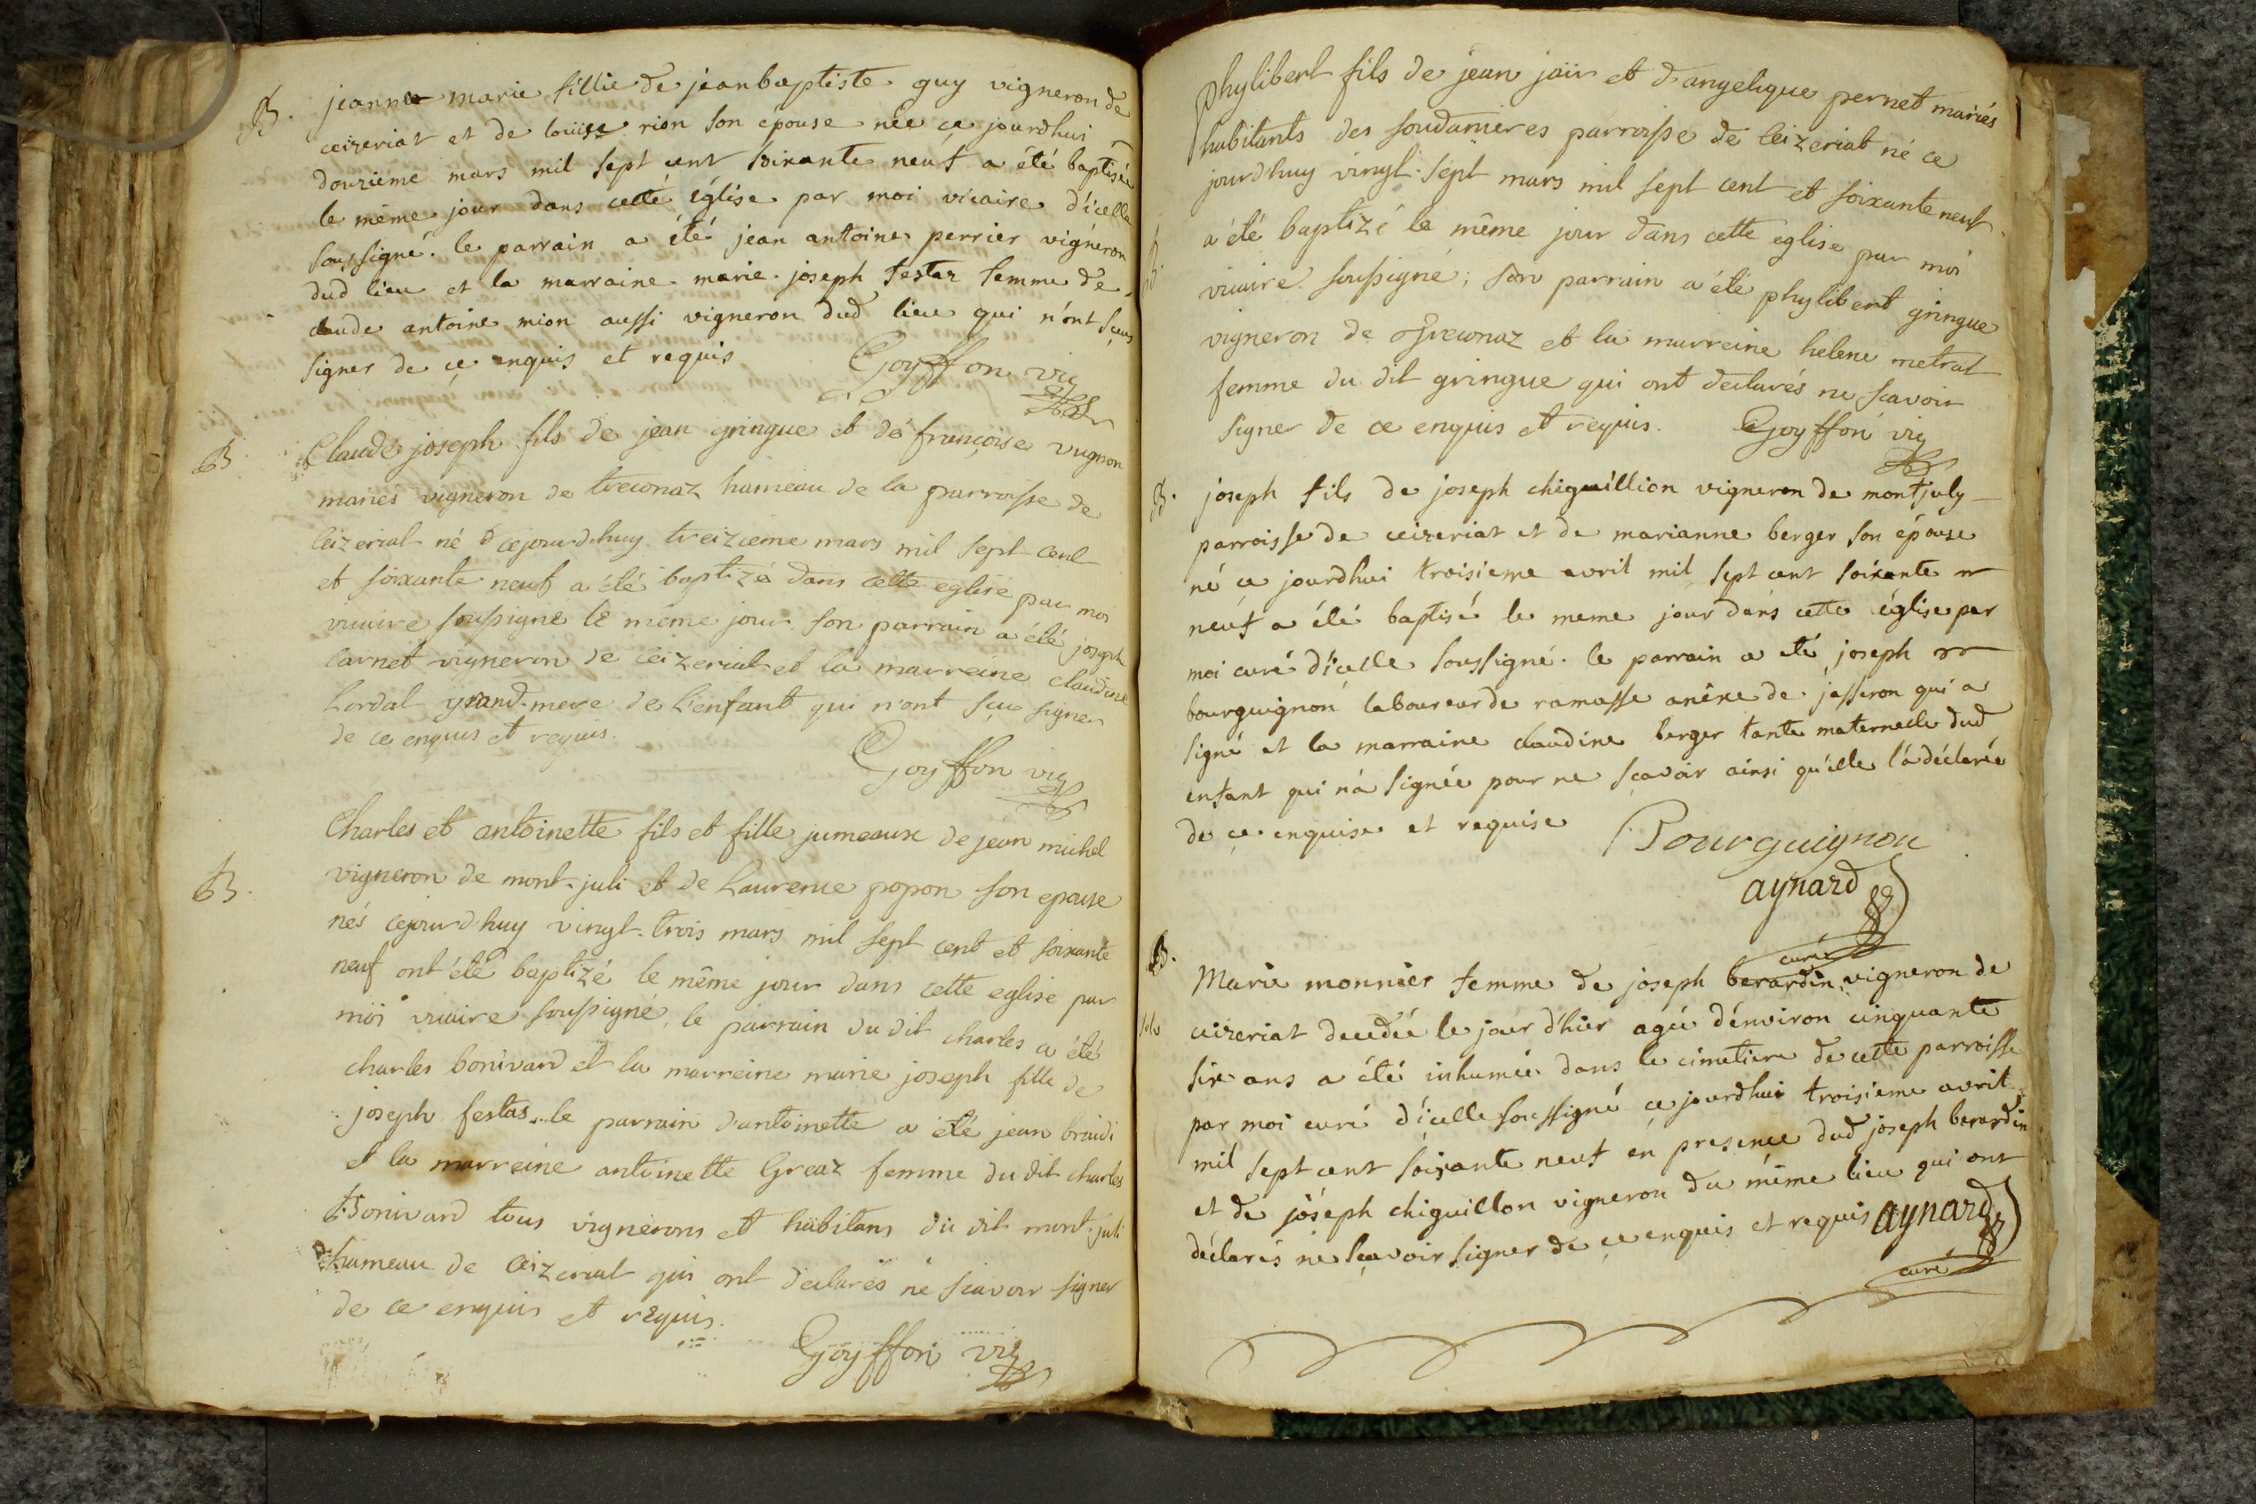 B. jeanne marie fillie de jeanbaptiste guy vigneron de
ceizeriat et de loüise rion son epouse née ce jourdhui
douzieme mars mil sept cent soixante neuf a été baptisée
le même jour dans cette église par moi vicaire d'icelle
soussigné. le parrain a été jean antoine perrier vigneron
dud lieu et la marraine marie joseph festaz femme de
claude antoine mion aussi vigneron dud lieu qui n'ont sçeus
signer de ce enquis et requis Goyffon vic
B. Claude joseph fils de jean gringue et de françoise vugnon
mariés vigneron de treconaz hameau de la parroisse de
Ceizeriat né cejourd'huy treizieme mars mil sept cent
et soixante neuf a été baptizé dans cette eglise par moi
vicaire soussigné le même jour. son parrain a été joseph
Carnet vigneron de Ceizeriat et la marreine claudine
Lordat grand-mere de l'enfant qui n'ont sçu signer
de ce enquis et requis.
Goyffon vic
B. Charles et antoinette fils et fille jumeaux de jean michel
vigneron de mont-juli et de Laurence popon son epouse
nés cejourd'huy vingt-trois mars mil sept cent et soixante
neuf ont été baptizé le même jour dans cette eglise par
moi vicaire soussigné, le parrain du dit charles a été
charles bonivard et la marreine marie joseph fille de
joseph festas. le parrain d'antoinette a été jean braidi
et la marreine antoinette Greaz femme du dit charles
Bonivard tous vignerons et habitans du dit mont-juli
hameau de Ceizeriat qui ont declarés ne sçavoir signer
de ce enquis et requis.
Goyffon vic
phylibert fils de jean jaïr et d'angelique pernet mariés
habitants des soudanieres parroisse de Ceizeriat né ce
jourdhuy vingt-sept mars mil sept cent et soixante neuf
B. a été baptizé le même jour dans cette eglise par moi
vicaire soussigné; son parrain a été phylibert gringue
vigneron de treconaz et la marreine helene metrat
femme du dit gringue qui ont declarés ne scavoir
signer de ce enquis et requis. Goyffon vic
B. joseph fils de joseph chiguillion vigneron de montjuly
parroisse de ceizeriat et de marianne berger son épouse
né ce jourdhui troisieme avril mil sept cent soixante
neuf a été baptisé le meme jour dans cette église par
moi curé d'icelle soussigné. le parrain a été joseph
bourguignon laboureur de ramasse anêxe de jasseron qui a
signé et la marraine claudine berger tante maternelle dud
enfant qui n'a signée pour ne sçavoir ainsi qu'elle l'a déclarée
de ce enquise et requise Bourguignon
aynard
curé
B. Marie monnier femme de joseph berardin vigneron de
ceizeriat decedée le jour d'hier agée d'environ cinquante
six ans a été inhumée dans le cimetiere de cette parroisse
par moi curé d'icelle soussigné ce jourdhui troisieme avril
mil sept cent soixante neuf en presence dud joseph berardin
et de joseph chiguillon vigneron du même lieu qui ont
déclarés ne sçavoir signer de ce enquis et requis aynard
curé